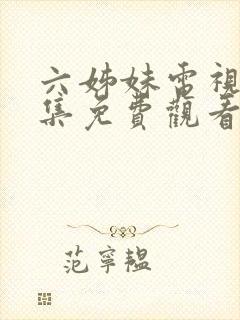 六姊妹電視
集免費觀看
范寧韞